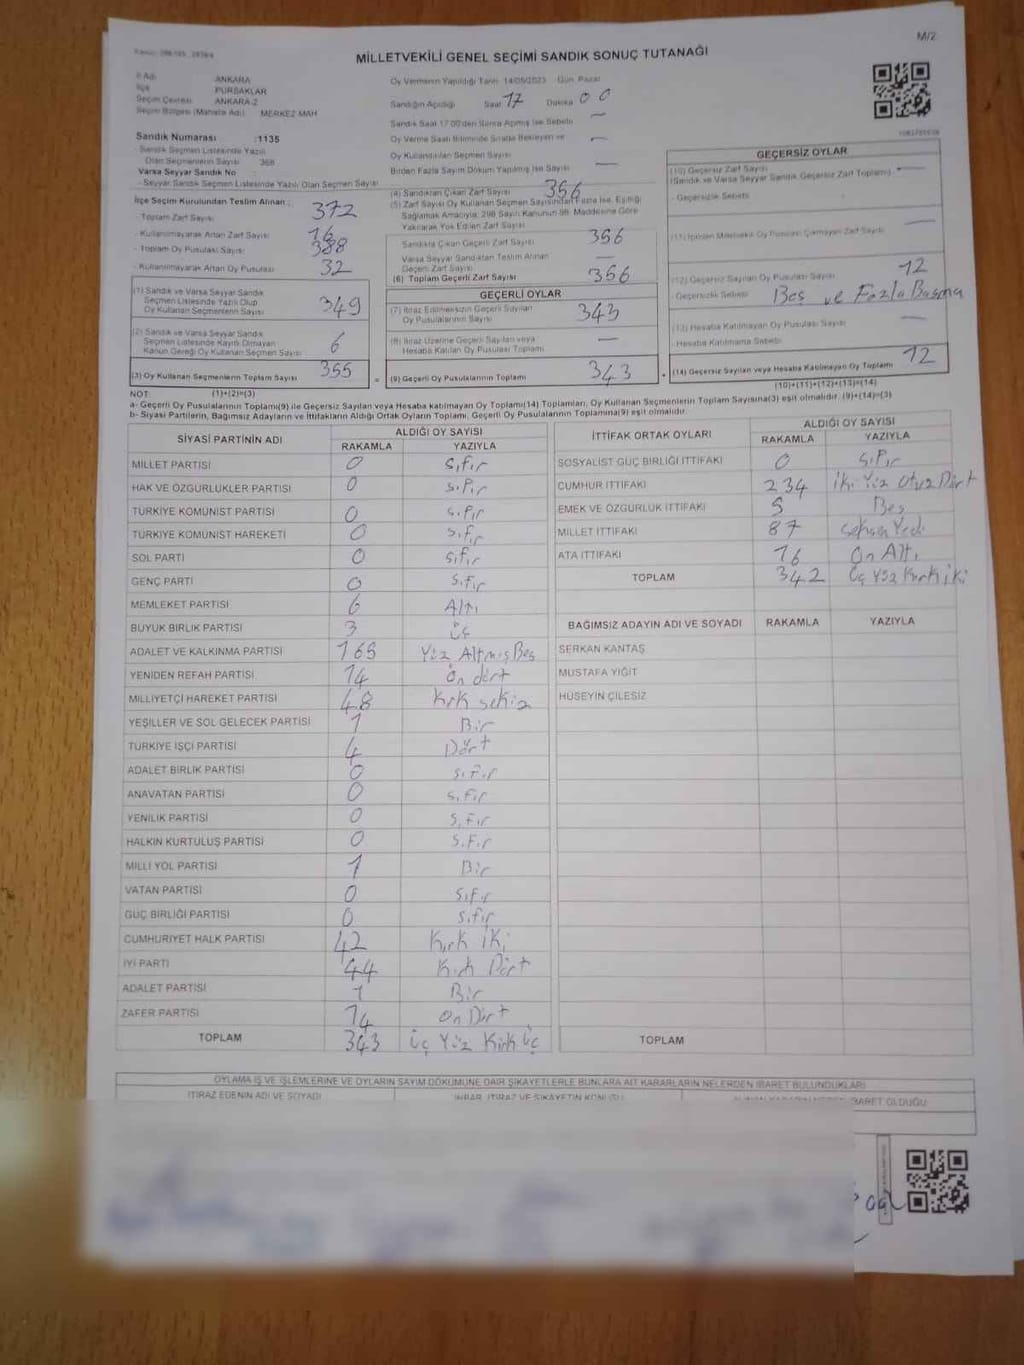 M/2
MİLLETVEKİLİ GENEL SEÇİMİ SANDIK SONUÇ TUTANAĞI
İl Adı ANKARA
İlçe PURSAKLAR
Seçim Çevresi ANKARA-2
Seçim Bölgesi (Mahalle Adı) MERKEZ MAH
Sandık Numarası :1135
- Sandık Seçmen Listesinde Yazılı
Olan Seçmenlerin Sayısı 368
Varsa Seyyar Sandık No
- Seyyar Sandık Seçmen Listesinde Yazılı Olan Seçmen Sayısı
İlçe Seçim Kurulundan Teslim Alınan :
- Toplam Zarf Sayısı 372
- Kullanılmayarak Artan Zarf Sayısı 16
- Toplam Oy Pusulası Sayısı 388
- Kullanılmayarak Artan Oy Pusulası 32
(1) Sandık ve Varsa Seyyar Sandık
Seçmen Listesinde Yazılı Olup
Oy Kullanan Seçmenlerin Sayısı 349
(2) Sandık ve Varsa Seyyar Sandık
Seçmen Listesinde Kayıtlı Olmayan
Kanun Gereği Oy Kullanan Seçmen Sayısı 6
(3) Oy Kullanan Seçmenlerin Toplam Sayısı 355
Oy Vermenin Yapıldığı Tarih 14/05/2023 Gün Pazar
Sandığın Açıldığı Saat 17 Dakika 00
Sandık Saat 17:00'den Sonra Açılmış İse Sebebi —
Oy Verme Saati Bitiminde Sırada Bekleyen ve
Oy Kullandırılan Seçmen Sayısı —
Birden Fazla Sayım Dökum Yapılmış İse Sayısı —
(4) Sandıktan Çıkan Zarf Sayısı 356
(5) Zarf Sayısı Oy Kullanan Seçmen Sayısından Fazla İse, Eşitliği
Sağlamak Amacıyla, 298 Sayılı Kanunun 98. Maddesine Göre
Yakılarak Yok Edilen Zarf Sayısı
Sandıkta Çıkan Geçerli Zarf Sayısı 356
Varsa Seyyar Sandıktan Teslim Alınan
Geçerli Zarf Sayısı —
(6) Toplam Geçerli Zarf Sayısı 356
GEÇERLİ OYLAR
(7) İtiraz Edilmeksizin Geçerli Sayılan
Oy Pusulalarının Sayısı 343
(8) İtiraz Üzerine Geçerli Sayılan veya
Hesaba Katılan Oy Pusulası Toplamı —
= (9) Geçerli Oy Pusulalarının Toplamı 343
GEÇERSİZ OYLAR
(10) Geçersiz Zarf Sayısı
(Sandık ve Varsa Seyyar Sandık Geçersiz Zarf Toplamı) —
- Geçersizlik Sebebi
(11) İçinden Milletvekili Oy Pusulası Çıkmayan Zarf Sayısı —
(12) Geçersiz Sayılan Oy Pusulası Sayısı 12
- Geçersizlik Sebebi Beş ve Fazla Basma
(13) Hesaba Katılmayan Oy Pusulası Sayısı —
- Hesaba Katılmama Sebebi
+ (14) Geçersiz Sayılan veya Hesaba Katılmayan Oy Toplamı 12
NOT: (1)+(2)=(3) (10)+(11)+(12)+(13)=(14)
a- Geçerli Oy Pusulalarının Toplamı(9) ile Geçersiz Sayılan veya Hesaba katılmayan Oy Toplamı(14) Toplamları, Oy Kullanan Seçmenlerin Toplam Sayısına(3) eşit olmalıdır. (9)+(14)=(3)
b- Siyasi Partilerin, Bağımsız Adayların ve İttifakların Aldığı Ortak Oyların Toplamı, Geçerli Oy Pusulalarının Toplamına(9) eşit olmalıdır
SİYASİ PARTİNİN ADI ALDIĞI OY SAYISI
RAKAMLA YAZIYLA
MİLLET PARTİSİ 0 Sıfır
HAK VE ÖZGÜRLÜKLER PARTİSİ 0 Sıfır
TÜRKİYE KOMÜNİST PARTİSİ 0 Sıfır
TÜRKİYE KOMÜNİST HAREKETİ 0 Sıfır
SOL PARTİ 0 Sıfır
GENÇ PARTİ 0 Sıfır
MEMLEKET PARTİSİ 6 Altı
BÜYÜK BİRLİK PARTİSİ 3 Üç
ADALET VE KALKINMA PARTİSİ 165 Yüz Altmış Beş
YENİDEN REFAH PARTİSİ 14 On dört
MİLLİYETÇİ HAREKET PARTİSİ 48 Kırk sekiz
YEŞİLLER VE SOL GELECEK PARTİSİ 1 Bir
TÜRKİYE İŞÇİ PARTİSİ 4 Dört
ADALET BİRLİK PARTİSİ 0 Sıfır
ANAVATAN PARTİSİ 0 Sıfır
YENİLİK PARTİSİ 0 Sıfır
HALKIN KURTULUŞ PARTİSİ 0 Sıfır
MİLLİ YOL PARTİSİ 1 Bir
VATAN PARTİSİ 0 Sıfır
GÜÇ BİRLİĞİ PARTİSİ 0 Sıfır
CUMHURİYET HALK PARTİSİ 42 Kırk iki
İYİ PARTİ 44 Kırk Dört
ADALET PARTİSİ 1 Bir
ZAFER PARTİSİ 14 On Dört
TOPLAM 343 Üç Yüz Kırk Üç
İTTİFAK ORTAK OYLARI ALDIĞI OY SAYISI
RAKAMLA YAZIYLA
SOSYALİST GÜÇ BİRLİĞİ İTTİFAKI 0 Sıfır
CUMHUR İTTİFAKI 234 İki Yüz Otuz Dört
EMEK VE ÖZGÜRLÜK İTTİFAKI 5 Beş
MİLLET İTTİFAKI 87 Seksen Yedi
ATA İTTİFAKI 16 On Altı
TOPLAM 342 Üç Yüz Kırk iki
BAĞIMSIZ ADAYIN ADI VE SOYADI RAKAMLA YAZIYLA
SERKAN KANTAŞ
MUSTAFA YİĞİT
HÜSEYİN ÇİLESİZ
TOPLAM
OYLAMA İŞ VE İŞLEMLERİNE VE OYLARIN SAYIM DÖKÜMÜNE DAİR ŞİKAYETLERLE BUNLARA AİT KARARLARIN NELERDEN İBARET BULUNDUKLARI
İTİRAZ EDENİN ADI VE SOYADI İHBAR, İTİRAZ VE ŞİKAYETİN KONUSU İBARET OLDUĞU